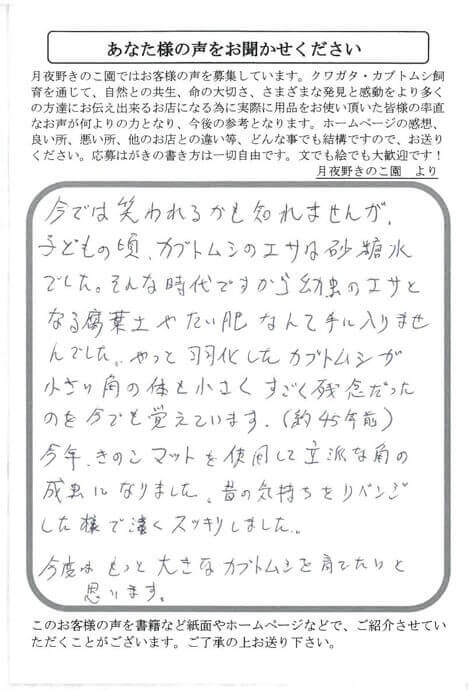 あなた様の声をお聞かせください
月夜野きのこ園ではお客様の声を募集しています。クワガタ・カブトムシ飼
育を通じて、自然との共生、命の大切さ、さまざまな発見と感動をより多く
の方達にお伝え出来るお店になる為に実際に用品をお使い頂いた皆様の率直
なお声が何よりの力となり、今後の参考となります。ホームページの感想、
良い所、悪い所、他のお店との違い等、どんな事でも結構ですので、お送り
ください。応募はがきの書き方は一切自由です。文でも絵でも大歓迎です！
月夜野きのこ園　より
今では笑われるかも知れませんが、
子どもの頃、カブトムシのエサは砂糖水
でした。そんな時代ですから幼虫のエサと
なる腐葉土やたい肥なんて手に入りませ
んでした。やっと羽化したカブトムシが
小さい角の体も小さくすごく残念だった
のを今でも覚えています。（約45年前）
今年、きのこマットを使用して立派な角の
成虫になりました。昔の気持ちをリベンジ
した様で凄くスッキリしました。
今度はもっと大きなカブトムシを育てたいと
思います。
このお客様の声を書籍など紙面やホームページなどで、ご紹介させてい
ただくことがございます。ご了承の上お送り下さい。